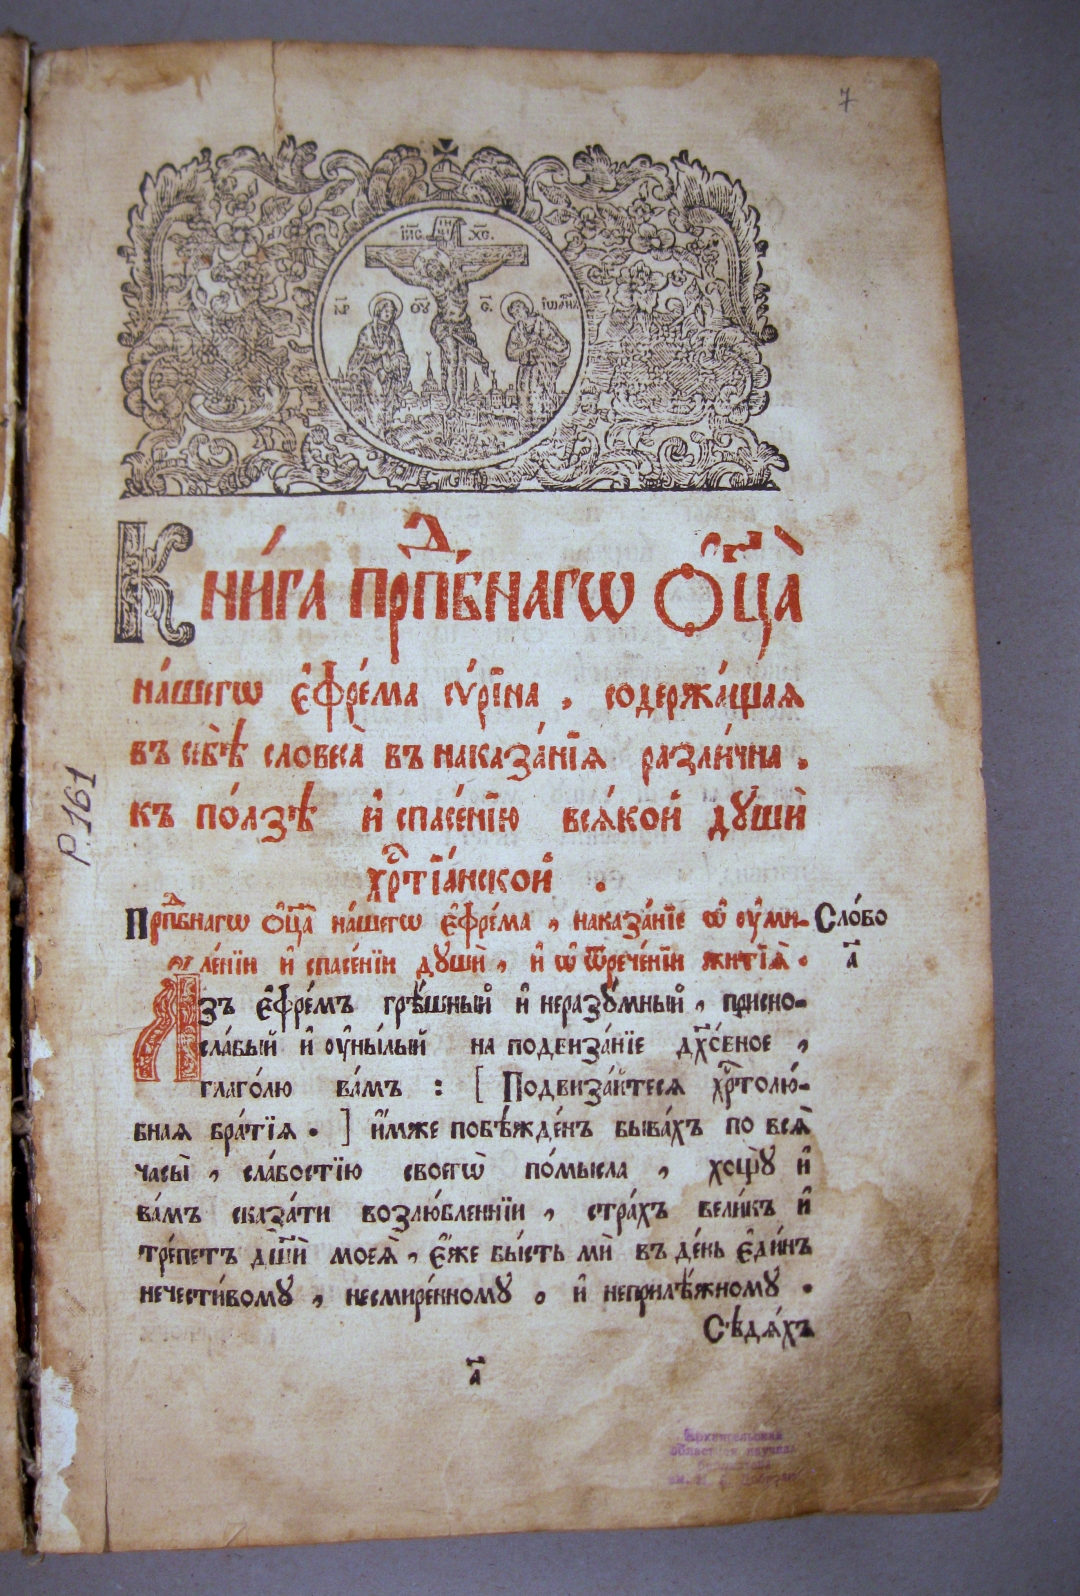 7
І҆и҃с. Х҃с.
М҃Р Ѳ҃У
Кни́га прпⷣбнагѡ ѻ҆ц҃а̀
на́шегѡ є҆фре́ма сѵ́рїна, содержа́щая
въ себѣ̀ словеса̀ въ наказа́нїя разли́чна.
къ по́лзѣ и҆ спасе́нїю вся́кои҆ дꙋшѝ
хрⷭ҇тїа́нскои҆.
Прпⷣбнагѡ ѻ҆ц҃а на́шегѡ є҆фре́ма, наказа́нїе ѡ҆ ѹ҆ми-
Сло́во
ле́нїи и҆ спасе́нїи дꙋшѝ, и҆ ѡ҆ ѿрече́нїи житїѧ̀.
а҃
Азъ є҆фре́мъ грѣ́шный и҆ неразꙋ́мный, присно-
сла́бый и҆ ѹ҆ны́лый на подвиза́нїе дх҃о́вное,
глаго́лю ва́мъ: [ Подвиза́йтеся хрⷭ҇толю́-
бная бра́тїя. ] и҆́мже побѣжде́нъ быва́хъ по вся̀
часы̀, сла́бостїю своегѡ̀ по́мысла, хощꙋ̀ и҆
ва́мъ сказа́ти возлю́бленнїи, стра́хъ вели́къ и҆
тре́петъ дш҃ѝ моея̀, є҆́же бы́сть мѝ въ де́нь є҆ди́нъ
нечести́вомꙋ, несмире́нномꙋ. и҆ неприлѣ́жномꙋ.
Сѣдя́хъ
а҃
Р.161
Архангельская
областная научная
библиотека